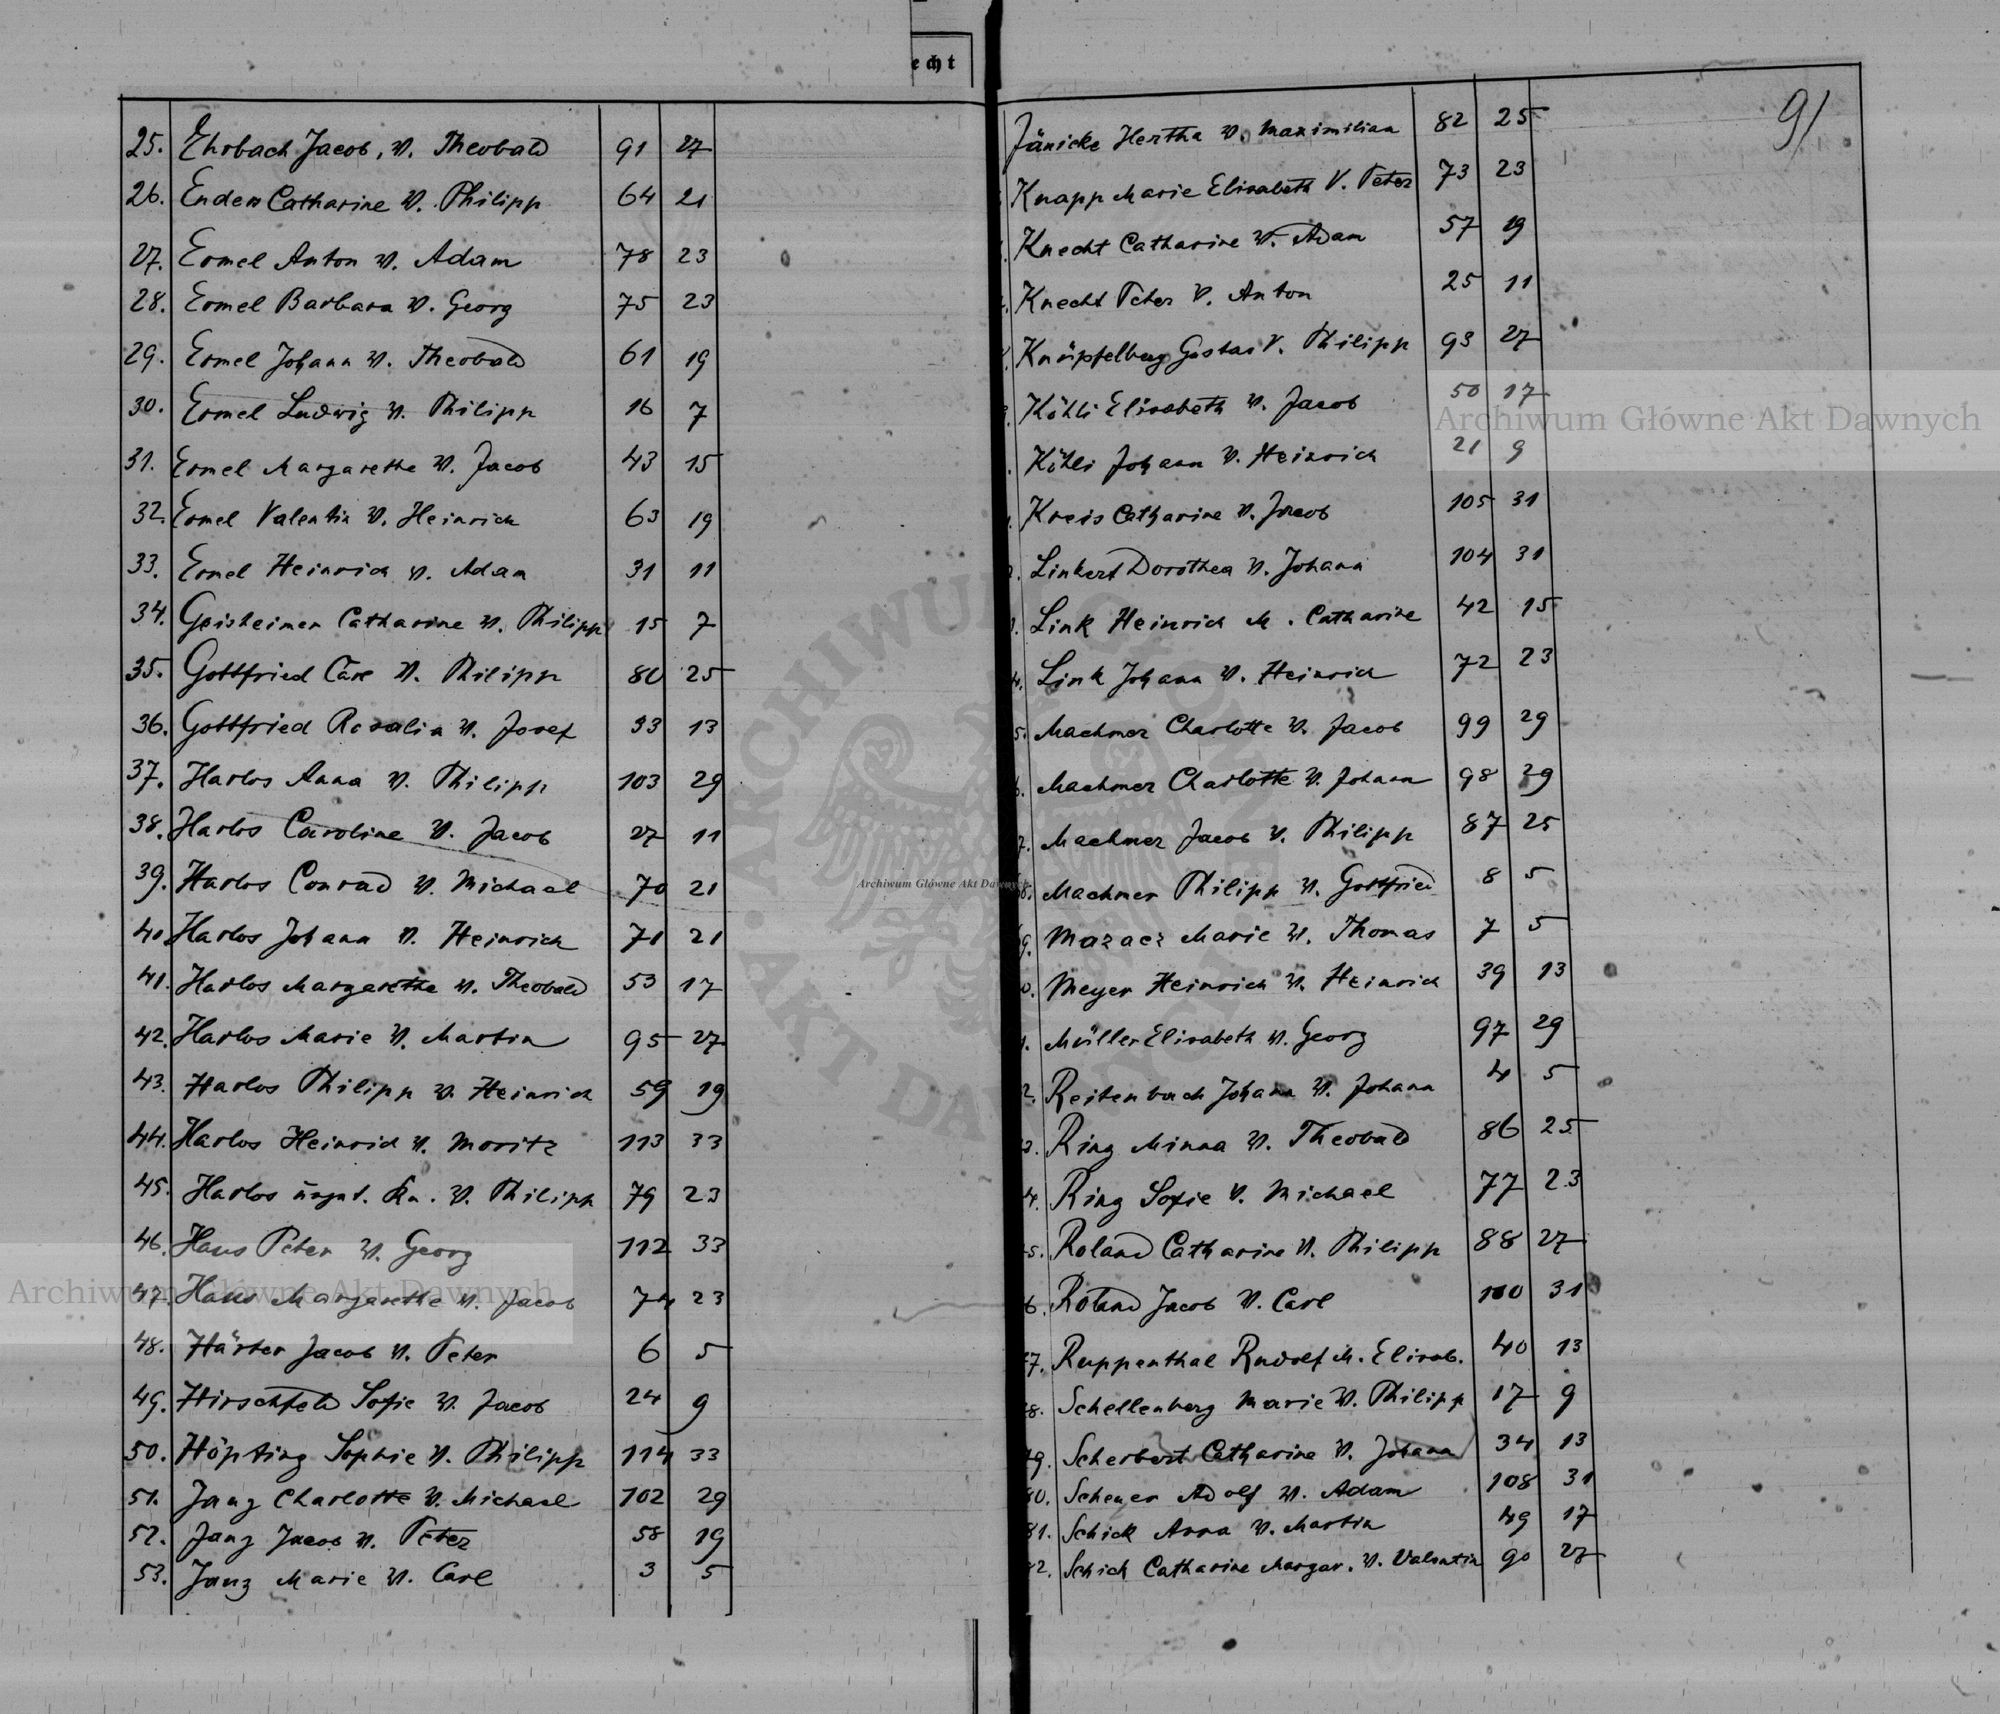 echt
91
25. Ehrbach Jacob, V. Theobald 91 27
26. Enders Catharine V. Philipp 64 21
27. Ermel Anton V. Adam 78 23
28. Ermel Barbara V. Georg 75 23
29. Ermel Johann V. Theobald 61 19
30. Ermel Ludwig V. Philipp 16 7
31. Ermel Margarethe V. Jacob 43 15
32. Ermel Valentin V. Heinrich 63 19
33. Ermel Heinrich V. Adam 31 11
34. Geisheimer Catharine V. Philipp 15 7
35. Gottfried Carl V. Philipp 80 25
36. Gottfried Rosalia V. Josef 33 13
37. Harlos Anna V. Philipp 103 29
38. Harlos Caroline V. Jacob 27 11
39. Harlos Conrad V. Michael 70 21
40. Harlos Johann V. Heinrich 71 21
41. Harlos Margarethe V. Theobald 53 17
42. Harlos Marie V. Martin 95 27
43. Harlos Philipp V. Heinrich 59 19
44. Harlos Heinrich V. Moritz 113 33
45. Harlos V. Philipp 79 23
46. Haus Peter V. Georg 112 33
47. Haus Margarethe V. Jacob 74 23
48. Härter Jacob V. Peter 6 5
49. Hirschfeld Sofie V. Jacob 24 9
50. Höpting Sophie V. Philipp 114 33
51. Jung Charlotte V. Michael 102 29
52. Jung Jacob V. Peter 58 19
53. Jung Marie V. Carl 3 5
Jänicke Hertha V. Maximilian 82 25
Knapp Marie Elisabeth V. Peter 73 23
Knecht Catharine V. Adam 57 19
Knecht Peter V. Anton 25 11
Knüpfelberg Gustav V. Philipp 93 27
Köhli Elisabeth V. Jacob 50 17
Köhli Johann V. Heinrich 21 9
Kreis Catharine V. Jacob 105 31
Linkert Dorothea V. Johann 104 31
Link Heinrich M. Catharine 42 15
4. Link Johann V. Heinrich 72 23
5. Machmer Charlotte V. Jacob 99 29
6. Machmer Charlotte V. Johann 98 29
7. Machmer Jacob V. Philipp 87 25
8. Machmer Philipp V. Gottfried 8 5
9. Mazacz Marie V. Thomas 7 5
0. Meyer Heinrich V. Heinrich 39 13
1. Müller Elisabeth V. Georg 97 29
2. Reitenbach Johann V. Johann 4 5
3. Ring Minna V. Theobald 86 25
4. Ring Sofie V. Michael 77 23
5. Roland Catharine V. Philipp 88 27
6. Roland Jacob V. Carl 100 31
77. Ruppenthal Rudolf M. Elisab. 40 13
78. Schellenberg Marie V. Philipp 17 9
79. Scherbert Catharine V. Johann 34 13
80. Scheuer Adolf V. Adam 108 31
81. Schick Anna V. Martin 49 17
82. Schick Catharine Margar. V. Valentin 90 27
Archiwum Główne Akt Dawnych
Archiwum Główne Akt Dawnych
Archiwum Główne Akt Dawnych
ARCHIWUM GŁÓWNE AKT DAWNYCH